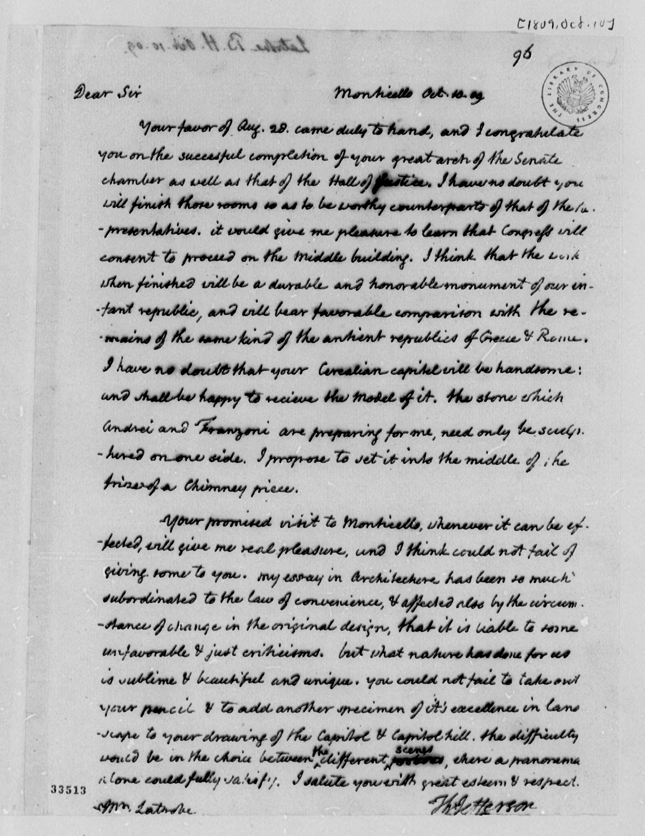 [1809, Oct. 10]
Latrobe B. H. Oct. 10. 09.
96
THE LIBRARY OF CONGRESS
Dear Sir Monticello Oct. 10. 09
Your favor of Aug. 28. came duly to hand, and I congratulate
you on the succesful completion of your great arch of the Senate
chamber as well as that of the Hall of Justice. I have no doubt you
will finish those rooms so as to be worthy counterparts of that of the Re-
-presentatives. it would give me pleasure to learn that Congress will
consent to proceed on the Middle building. I think that the work
when finished will be a durable and honorable monument of our in-
-fant republic, and will bear favorable comparison with the re-
-mains of the same kind of the antient republics of Greece & Rome.
I have no doubt that your Cerealian capitel will be handsome:
and shall be happy to recieve the model of it. the stone which
Andrei and Franzoni are preparing for me, need only be sculp-
-tured on one side. I propose to set it into the middle of the
frize of a Chimney piece.
Your promised visit to Monticello, whenever it can be ef-
-fected, will give me real pleasure, and I think could not fail of
giving some to you. my essay in Architecture has been so much
subordinated to the law of convenience, & affected also by the circum-
-stance of change in the original design, that it is liable to some
unfavorable & just criticisms. but what nature has done for us
is sublime & beautiful and unique. you could not fail to take out
your pencil & to add another specimen of it's excellence in land-
-scape to your drawing of the Capitol & Capitol hill. the difficulty
would be in the choice between the different scenes, where a panorama
alone could fully satisfy. I salute you with great esteem & respect.
Th Jefferson
Mr. Latrobe
33513